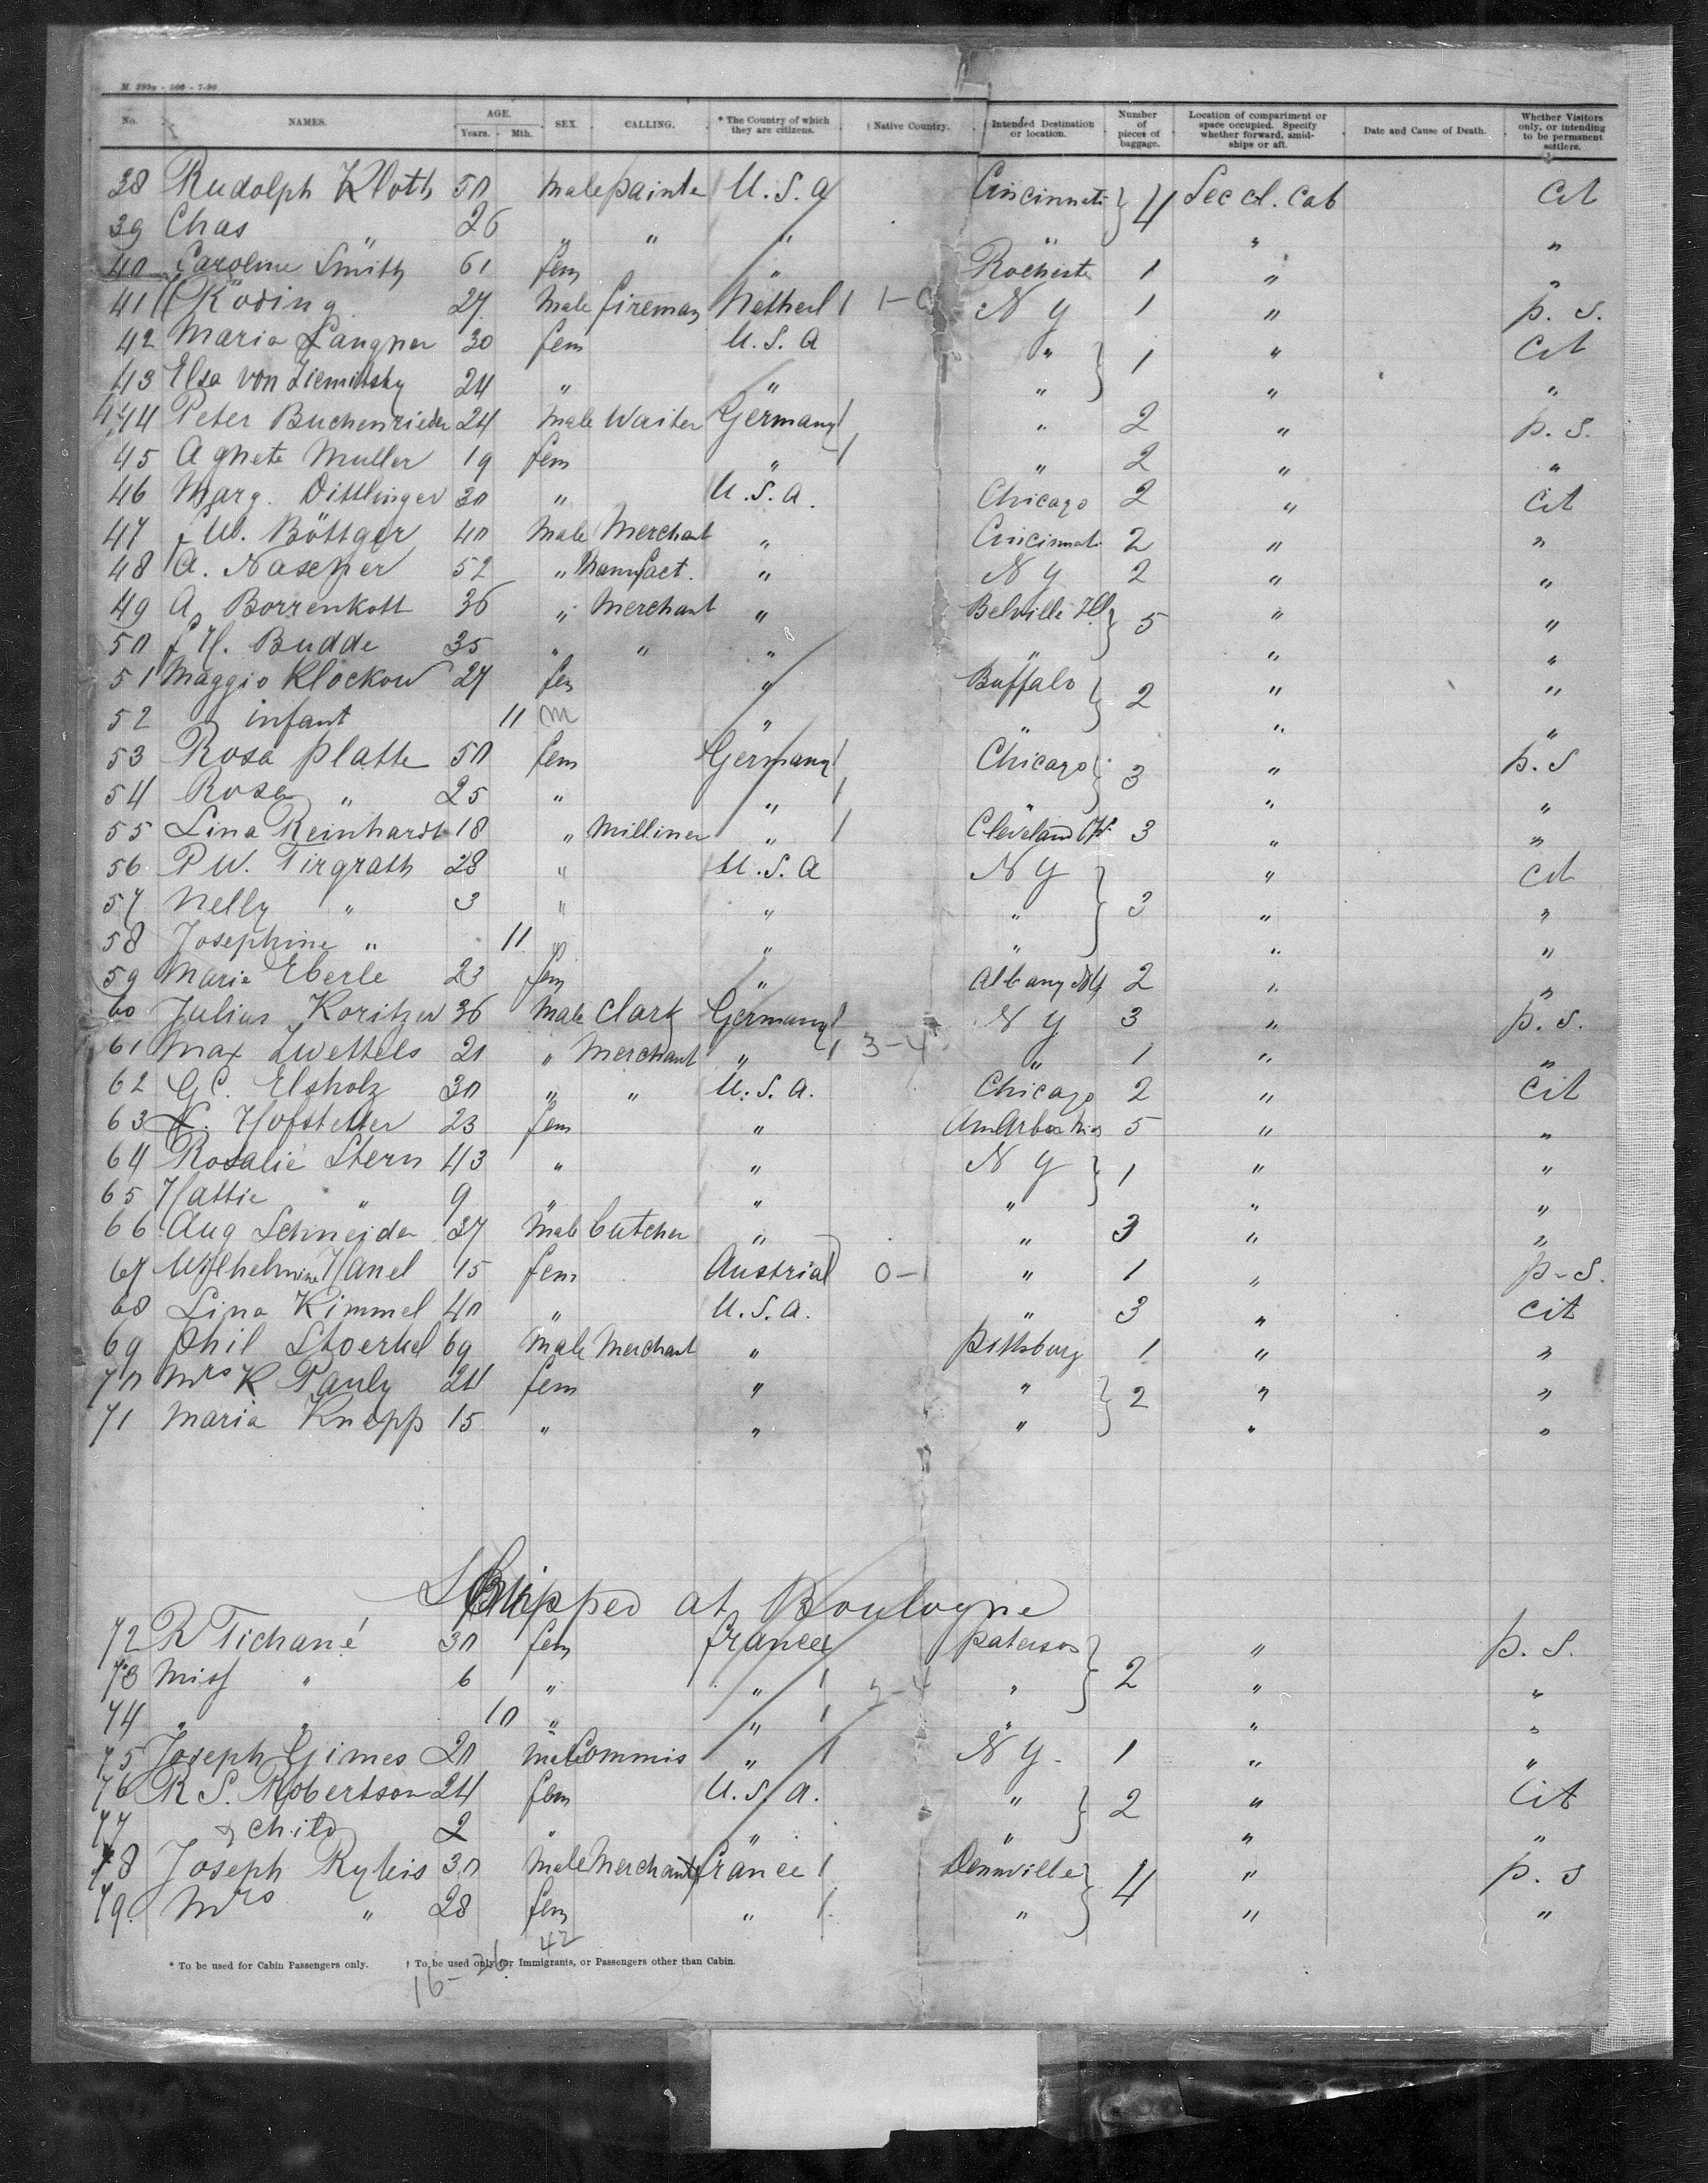 M 293a - 500 - 7-90
No. NAMES. AGE. Years. Mth. SEX. CALLING. * The Country of which they are citizens. † Native Country. Intended Destination or location. Number of pieces of baggage. Location of compartment or space occupied. Specify whether forward, amidships or aft. Date and Cause of Death. Whether Visitors only, or intending to be permanent settlers.
38 Rudolph Kloth 50 male painter U.S.A Cincinnati } 4 Sec cl. Cab Cit
39 Chas " 26 " " " " " "
40 Caroline Smith 61 fem " Rochester 1 " "
41 Köding 27 male fireman Netherl 1 N Y 1 " p. s.
42 Maria Langner 30 fem U.S.A " } 1 " Cit
43 Elsa von Ziemitsky 24 " " " " "
44 Peter Buchenrieder 24 male Waiter Germany 1 " 2 " p. s.
45 Agnete Muller 19 fem " 1 " 2 " "
46 Marg. Dittlinger 30 " U.S.A. Chicago 2 " Cit
47 W. Böttger 40 male Merchant " Cincinnati 2 " "
48 A. Nascher 52 " Manufact. " N Y 2 " "
49 A. Borrenkott 36 " Merchant " Belville Ill } 5 " "
50 H. Budde 35 " " " " " "
51 Maggie Klockow 27 fem " Buffalo } 2 " "
52 infant 11 m " " " "
53 Rosa Platte 50 fem Germany 1 Chicago } 3 " p. s
54 Rosa " 25 " " 1 " " "
55 Lina Reinhardt 18 " Milliner " 1 Cleveland 3 " "
56 P W. Tirgrath 28 " U.S.A N Y } 3 " Cit
57 Nelly " 3 " " " " "
58 Josephine " 11 " " " " "
59 Marie Eberle 23 fem " Albany NY 2 " "
60 Julius Koritzer 36 male Clark Germany 1 N Y 3 " p. s.
61 Max Zwettels 20 " Merchant " 1 3-4 " 1 " "
62 G.C. Elsholz 30 " " U.S.A. Chicago 2 " Cit
63 Hofstetter 23 fem " 5 " "
64 Rosalie Stern 43 " " N Y } 1 " "
65 Hattie " 9 " " " " "
66 Aug Schneider 37 male butcher " " 3 " "
67 Wilhelmine Hanel 15 fem Austria 1 0-1 " 1 " p-s.
68 Lina Kimmel 40 " U.S.A. " 3 " Cit
69 Phil Stoerkel 69 male Merchant " Pittsburg 1 " "
70 Mrs K Pauly 24 fem " " } 2 " "
71 Maria Knepp 15 " " " " "
Shipped at Boulogne
72 R Tichané 30 fem france 1 Paterson } 2 " p. s.
73 Miss " 6 " " 1 " " "
74 " " 10 " " 1 " " "
75 Joseph Gimes 20 male Commis " 1 N Y. 1 " "
76 R S. Robertson 24 fem U.S.A. " } 2 " Cit
77 & child 2 " " " " "
78 Joseph Ryleis 30 male Merchant france 1 Dennville } 4 " p. s
79. Mrs " 28 fem " 1 " " "
42
* To be used for Cabin Passengers only. † To be used only for Immigrants, or Passengers other than Cabin.
16-26